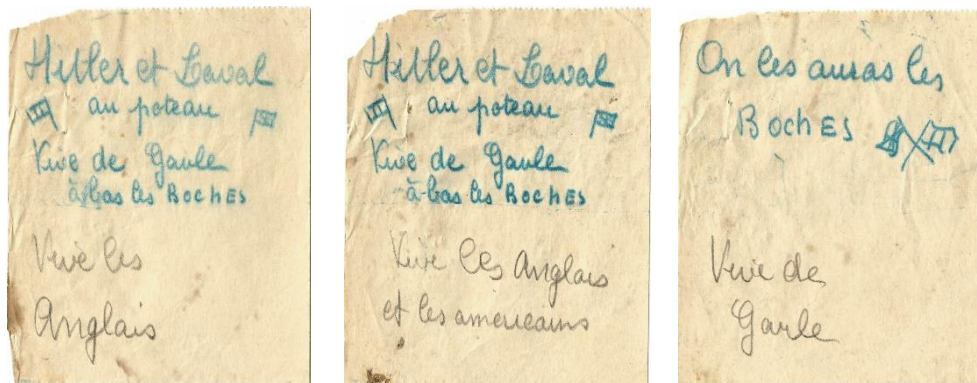 Hitler et Laval
au poteau
Vive de Gaule
à bas les Boches
Vive les
Anglais
Hitler et Laval
au poteau
Vive de Gaule
à bas les Boches
Vive les Anglais
et les americains
On les auras les
Boches
Vive de
Garle